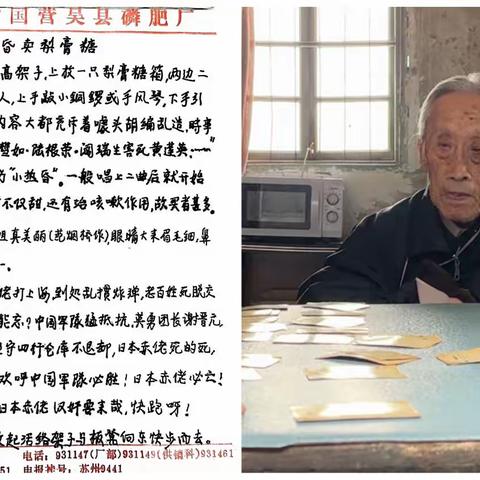 国营吴县磷肥厂
昏卖梨膏糖
高架子,上放一只梨膏糖箱,两边二
人,上手敲小铜锣或手风琴,下手引
内容大都充斥着噱头胡编乱造,时事
譬如·陆根荣·阎瑞生害死黄莲英……”
的“小热昏”。一般唱上二曲后就开始
不仅甜,还有治咳嗽作用,故买者甚多。
姐真美丽(范烟桥作),眼睛大来眉毛细,鼻
佬打上海,到处乱掼炸弹,老百姓死脱交
能忘?中国军队猛抵抗,英勇团长谢晋元,
坚守四行仓库不退却,日本赤佬死的死,
欢呼中国军队必胜!日本赤佬必亡!
日本赤佬汉奸要来哉,快跑呀!
起活络架子与板凳向东快步而去。
电话:931147(厂部)931149(供销科)931461
51 电报挂号:苏州9441